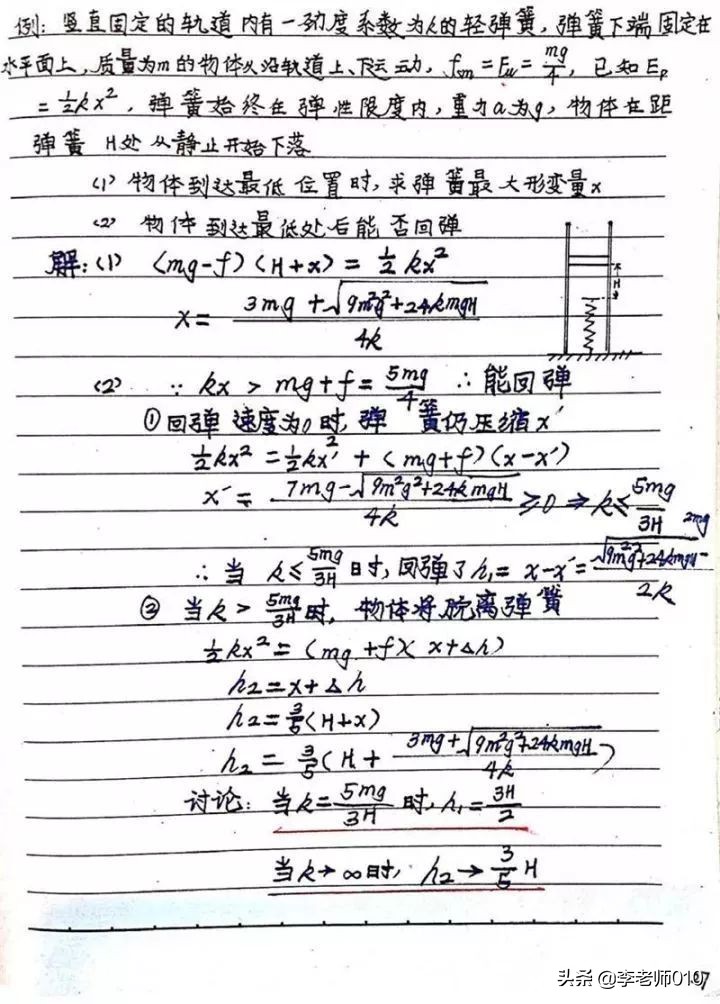 例: 竖直固定的轨道内有一劲度系数为k的轻弹簧, 弹簧下端固定在
水平面上, 质量为m的物体从沿轨道上、下运动, fm = F = mg/4, 已知 Ep
= ½kx², 弹簧始终在弹性限度内, 重力a为g, 物体在距
弹簧 H处从静止开始下落
(1) 物体到达最低位置时, 求弹簧最大形变量x
(2) 物体到达最低处后能否回弹
H
解: (1) (mg-f)(H+x) = ½kx²
x = (3mg + √(9m²g²+24kmgH))/4k
(2) ∵ kx > mg+f = 5mg/4 ∴ 能回弹
① 回弹速度为0时, 弹簧仍压缩x′
½kx² = ½kx′² + (mg+f)(x-x′)
x′ = (7mg-√(9m²g²+24kmgH))/4k ≥0 ⇒ k≤5mg/3H
∴ 当 k≤5mg/3H 时, 回弹了h₁= x-x′= (√(9m²g²+24kmgH)-2mg)/2k
② 当k > 5mg/3H 时, 物体将脱离弹簧
½kx² = (mg+f)(x+Δh)
h₂=x+Δh
h₂=3/5(H+x)
h₂ = 3/5(H + (3mg+√(9m²g²+24kmgH))/4k)
讨论: 当k=5mg/3H 时, h₁=3H/2
当k→∞时, h₂→3/5H
头条 @李老师010